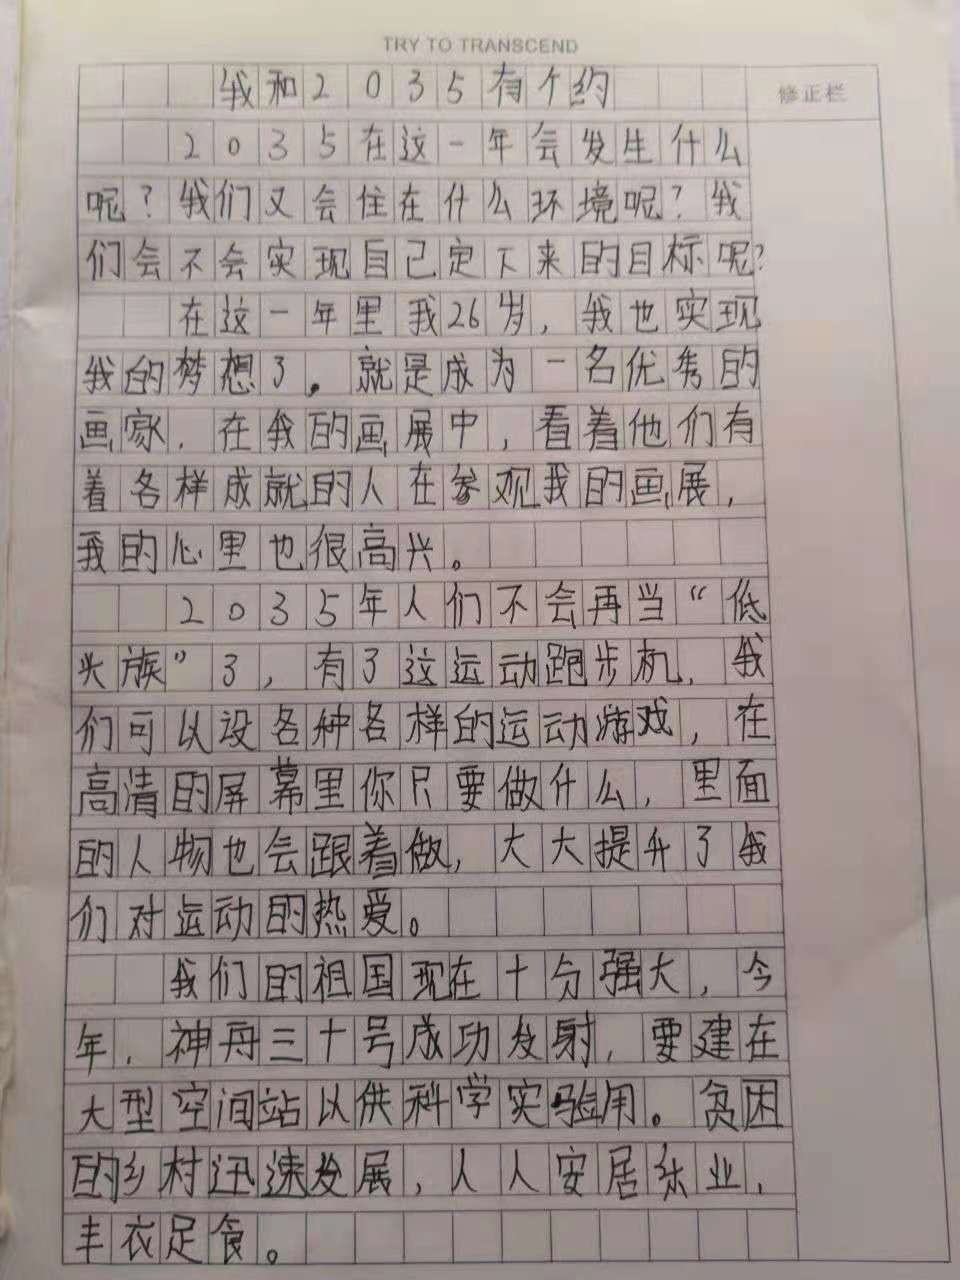 TRY TO TRANSCEND
修正栏
我和2035有个约
2035在这一年会发生什么
呢?我们又会住在什么环境呢?我
们会不会实现自己定下来的目标呢?
在这一年里我26岁,我也实现
我的梦想了。就是成为一名优秀的
画家.在我的画展中,看着他们有
着各样成就的人在参观我的画展,
我的心里也很高兴。
2035年人们不会再当“低
头族”了,有了这运动跑步机,我
们可以设各种各样的运动游戏,在
高清的屏幕里你只要做什么,里面
的人物也会跟着做,大大提升了我
们对运动的热爱。
我们的祖国现在十分强大,今
年,神舟三十号成功发射,要建在
大型空间站以供科学实验用。贫困
的乡村迅速发展,人人安居乐业,
丰衣足食。